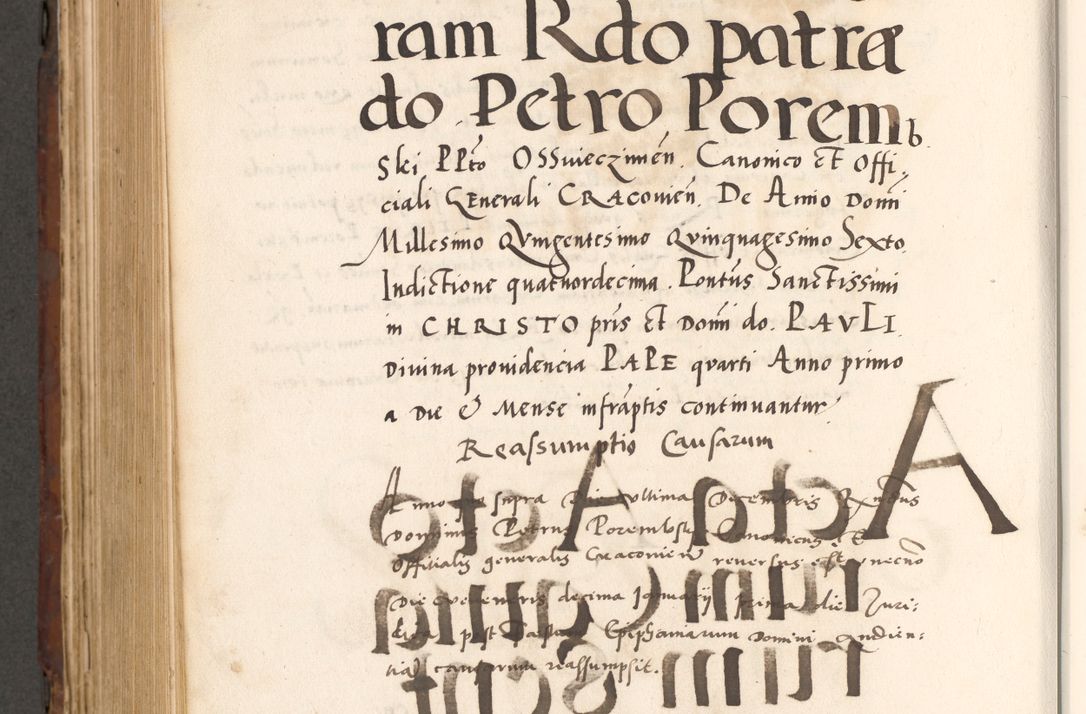 ram Rdo patræ
do Petro Poremb
Ski PPto OSSwieczimeñ. Canonico Et Offi,
ciali GEnerali CRACovień. De Anno Domi
Millesimo QVingentesimo Qvinquagesimo Sexto
IndicTione quatuordecima. Pontus SancTissimi
in CHRISTO pris Et Domi do. PAVLI
Divina providencia PAPE qvarti Anno primo
a Die & Mense infraptis continvantur
Reassumptio Causarum
Anno supra Die ultima Decembris
Dominus Petrus Porembsky Canonicus Et
Officialis generalis Cracovien reversus est necno
Die veneris decima Januarij prima die Juri:
dica post Epiphaniarum Domini Audien:
tia causarum reassumpsit.